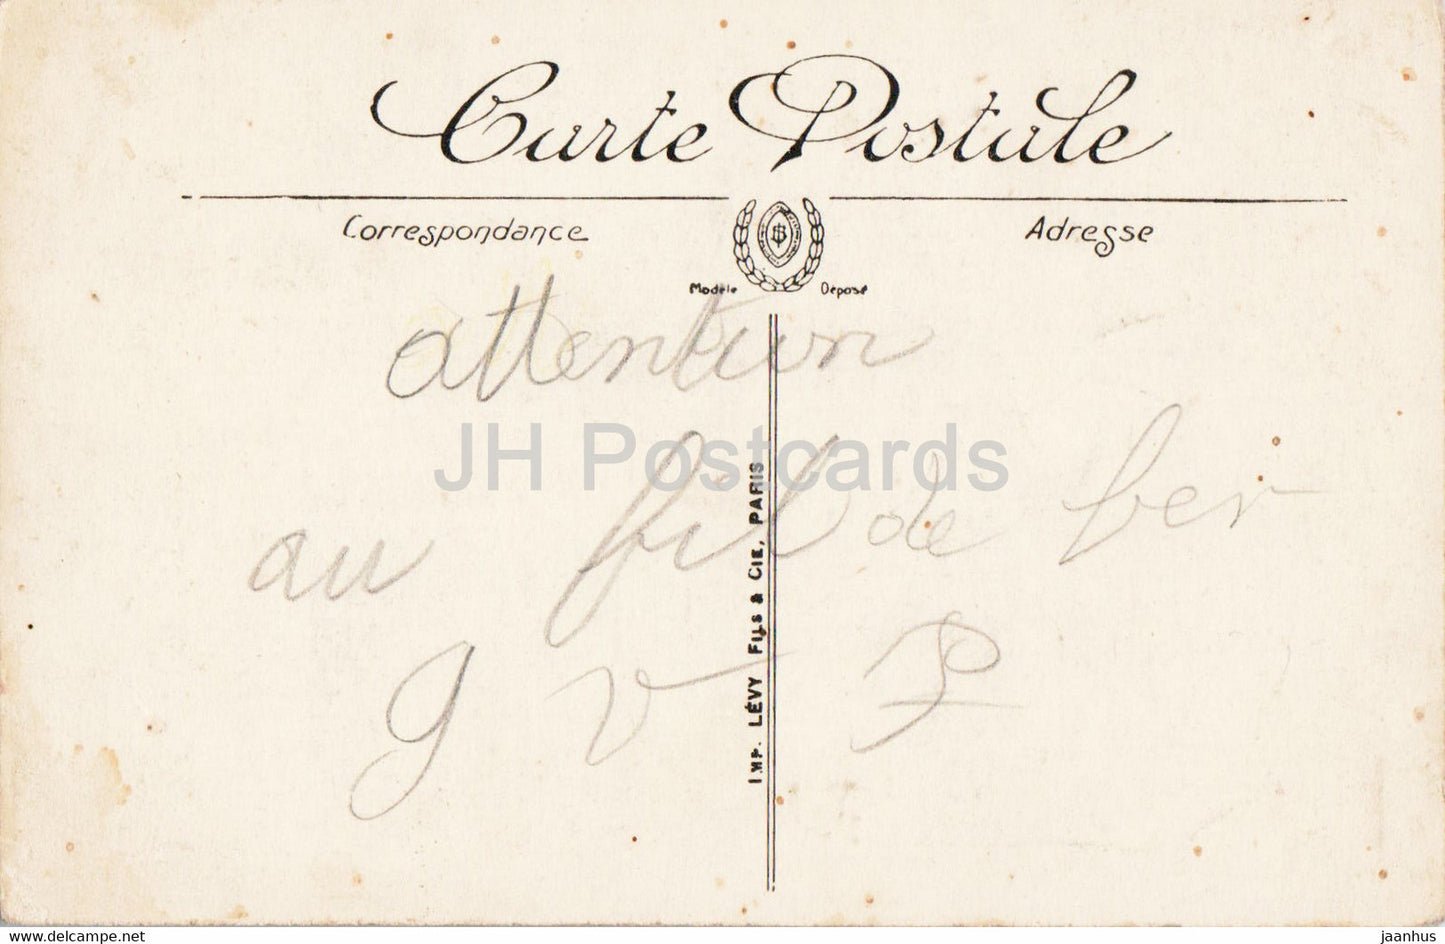 Carte Postale
Correspondance
Adresse
Modèle Déposé
attention
JH Postcards
au fil de fer
g v P
IMP. LÉVY FILS & CIE, PARIS
www.delcampe.net
jaanhus